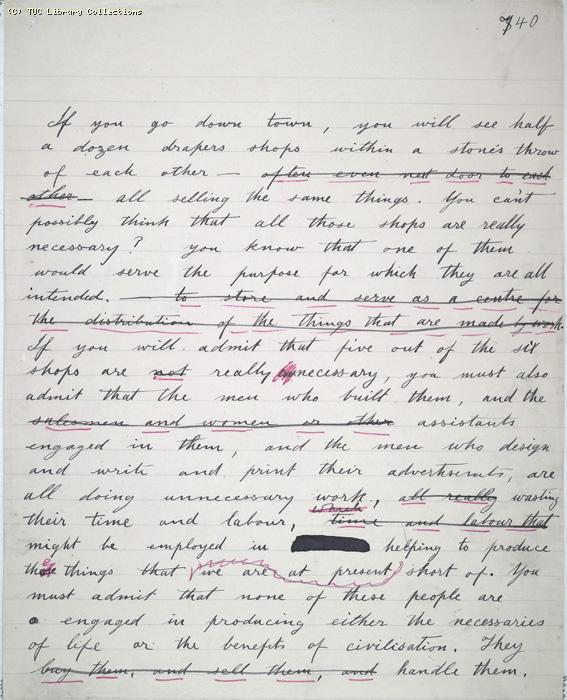 (C) TUC Library Collections
740
If you go down town, you will see half
a dozen drapers shops within a stone's throw
of each other — often even next door to each
other — all selling the same things. You can't
possibly think that all those shops are really
necessary? you know that one of them
would serve the purpose for which they are all
intended. — to store and serve as a centre for
the distribution of the things that are made by work.
If you will admit that five out of the six
shops are not really necessary, you must also
admit that the men who built them, and the
salesmen and women or other assistants
engaged in them, and the men who design
and write and print their advertisments, are
all doing unnecessary work, all really wasting
their time and labour, time and labour that
might be employed in helping to produce
those things that we are at present short of. You
must admit that none of these people are
engaged in producing either the necessaries
of life or the benefits of civilisation. They
buy them, and sell them, and handle them.